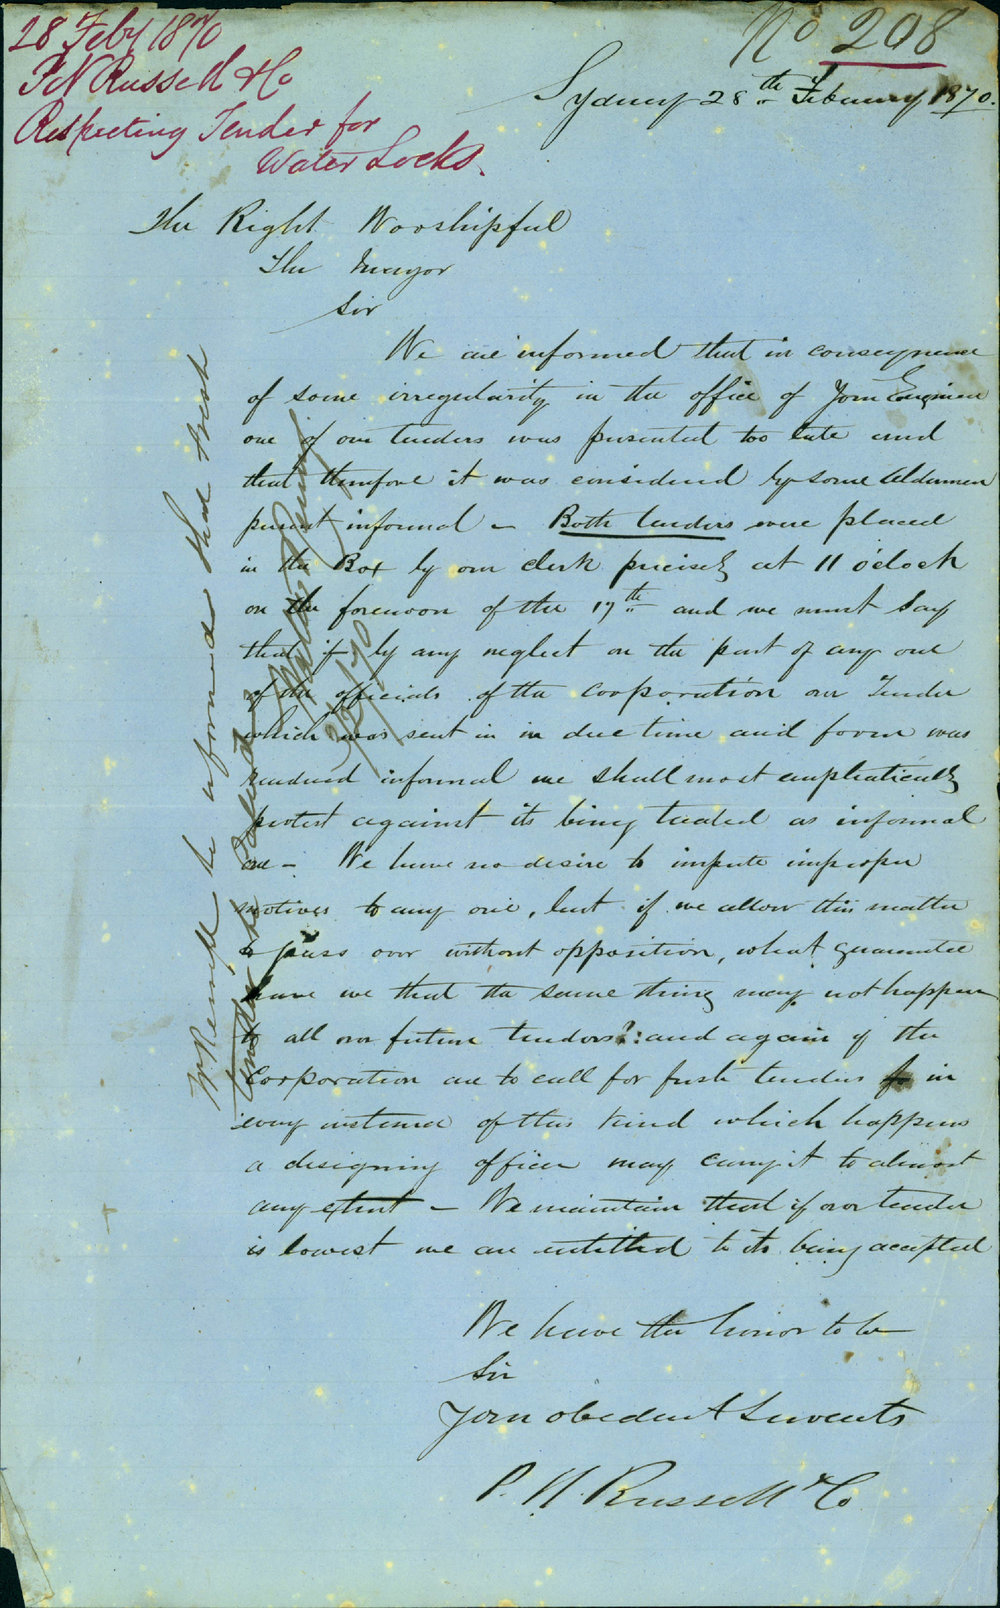 28 Feby 1870
P N Russell & Co
Respecting Tender for
Water Locks.
No 208
Sydney 28th February 1870.
The Right Worshipful
The Mayor
Sir
We are informed that in consequence
of some irregularity in the office of your Engineer
one of our tenders was presented too late and
that therefore it was considered by some Aldermen
present informal - Both tenders were placed
in the Box by our clerk precisely at 11 o'clock
on the forenoon of the 17th and we must say
that if by any neglect on the part of any one
of the officials of the Corporation our Tender
which was sent in in due time and form was
rendered informal we shall most emphatically
protest against its being treated as informal
one - We have no desire to impute improper
motives to any one, but if we allow this matter
to pass over without opposition, what guarantee
have we that the same thing may not happen
to all our future tenders? : and again if the
Corporation are to call for fresh tenders in
every instance of this kind which happens
a designing officer may carry it to almost
any extent - We maintain that if our tender
is lowest we are entitled to its being accepted
We have the honor to be
Sir
Your obedient Servants
P. N. Russell & Co
to be informed that fresh
Tenders be called
3/3/70